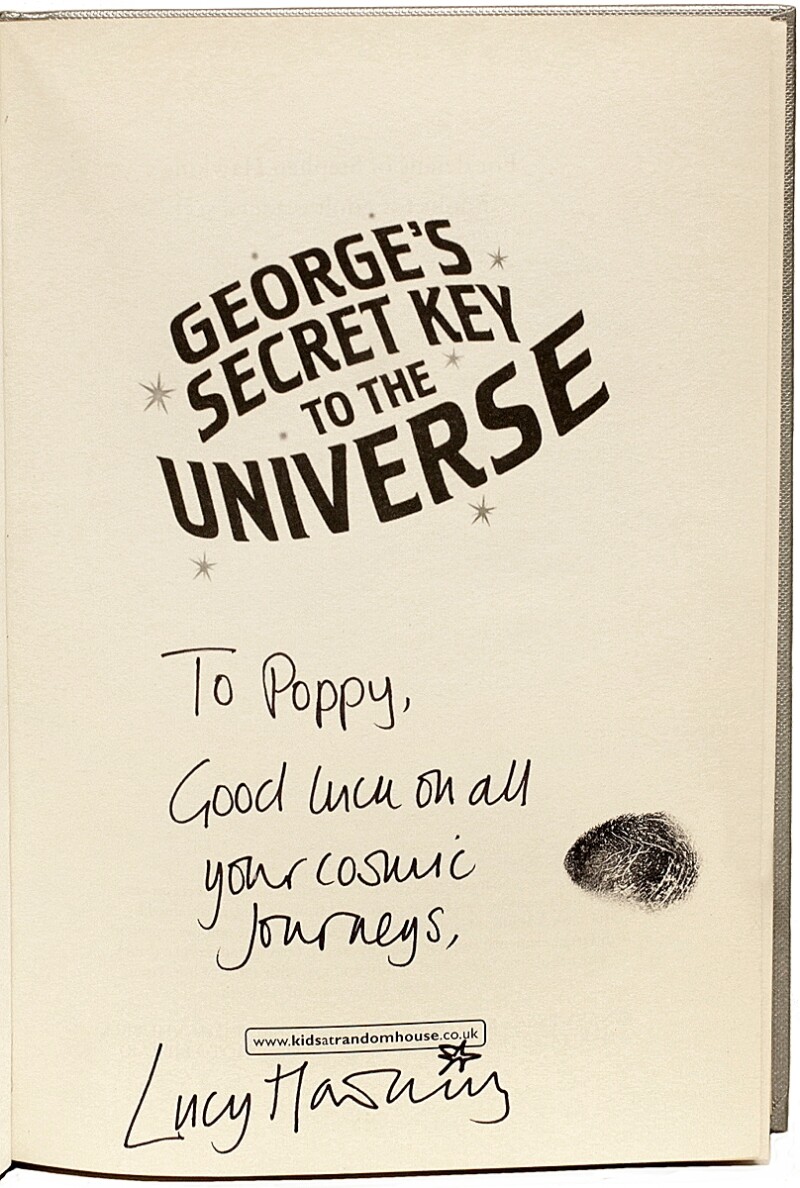 GEORGE'S
SECRET KEY
TO THE
UNIVERSE
To Poppy,
Good luck on all
your cosmic
Journeys,
www.kidsatrandomhouse.co.uk
Lucy Hawking